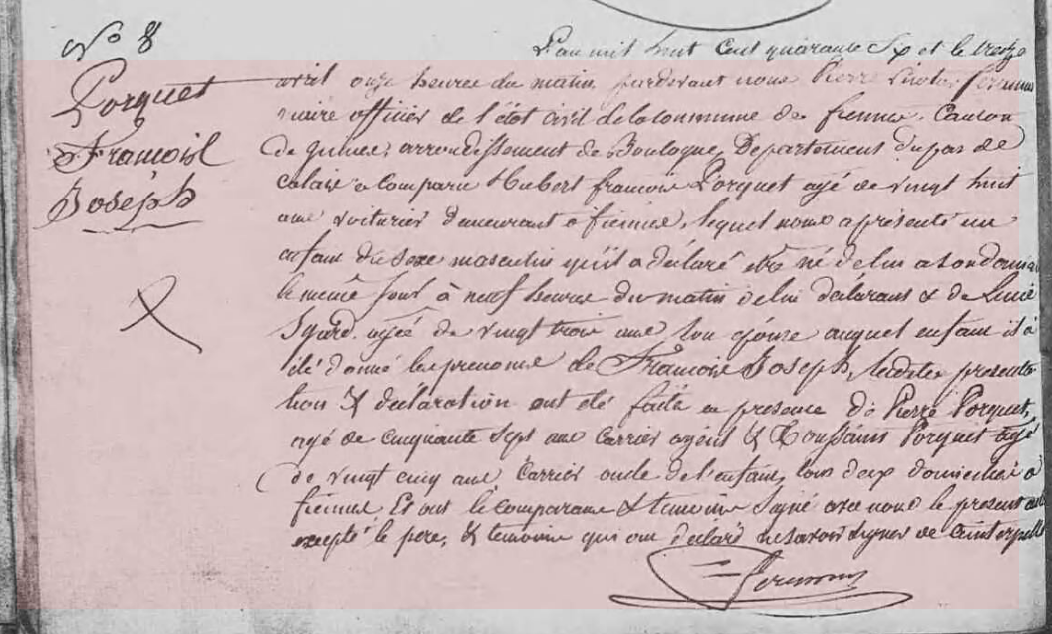 N° 8
Porquet
François
Joseph
L'an mil huit Cent quarante Six et le treize
avril onze heures du matin pardevant nous Pierre
maire officier de l'état civil de la Commune de fiennes, Canton
de guines, arrondissement de Boulogne, Departement du pas de
calais a comparu Hubert françois Porquet agé de vingt huit
ans voiturier demeurant a fiennes, lequel nous a présenté un
enfant du Sexe masculin qu'il a déclaré etre né de lui a son domicile
le même Jour à neuf heures du matin de lui déclarant & de
agée de vingt trois ans Son épouse auquel enfant il à
été donné les prenoms de François Joseph, lesdites présenta
tion & déclaration ont été faite en présence de Pierre Porquet,
agé de cinquante Sept ans Carrier & Toussaint Porquet agé
de vingt cinq ans Carrier oncle de l'enfant, tous deux domiciliés a
fiennes Et ont le comparans & temoins Signé avec nous le présent
excepté le pere, & temoins qui ont déclaré ne savoir signer de